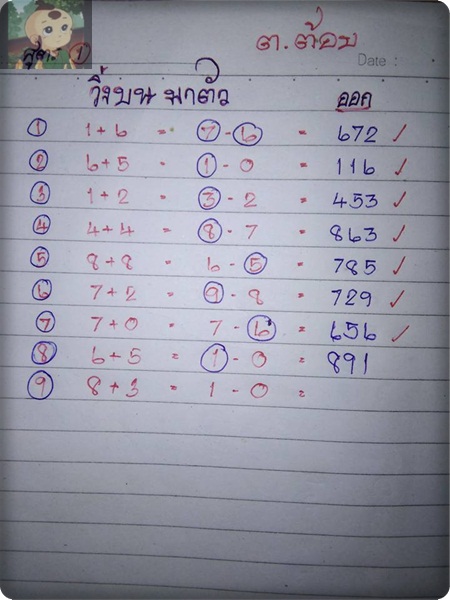 สูตร 1
ต.ต้อม
Date :
วิ่งบน มาตัว ออก
1 1+6 = 7-6 = 672 ✓
2 6+5 = 1-0 = 116 ✓
3 1+2 = 3-2 = 453 ✓
4 4+4 = 8-7 = 863 ✓
5 8+8 = 6-5 = 785 ✓
6 7+2 = 9-8 = 729 ✓
7 7+0 = 7-6 = 656 ✓
8 6+5 = 1-0 = 891
9 8+3 = 1-0 =